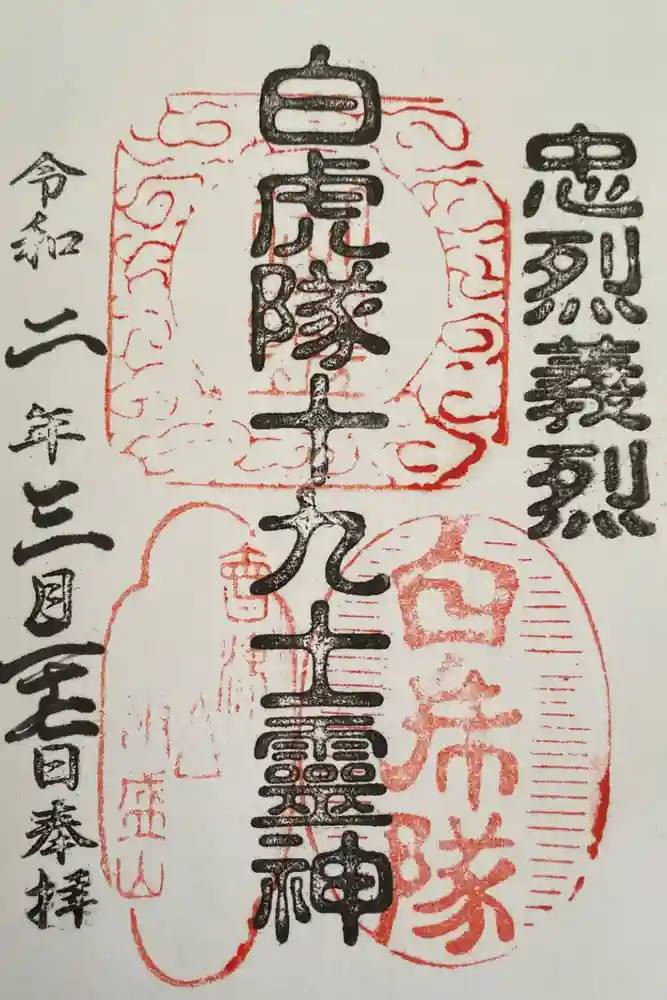 忠烈義烈
白虎隊十九士靈神
令和二年三月二十七日奉拝
白虎隊
會津
飯盛山